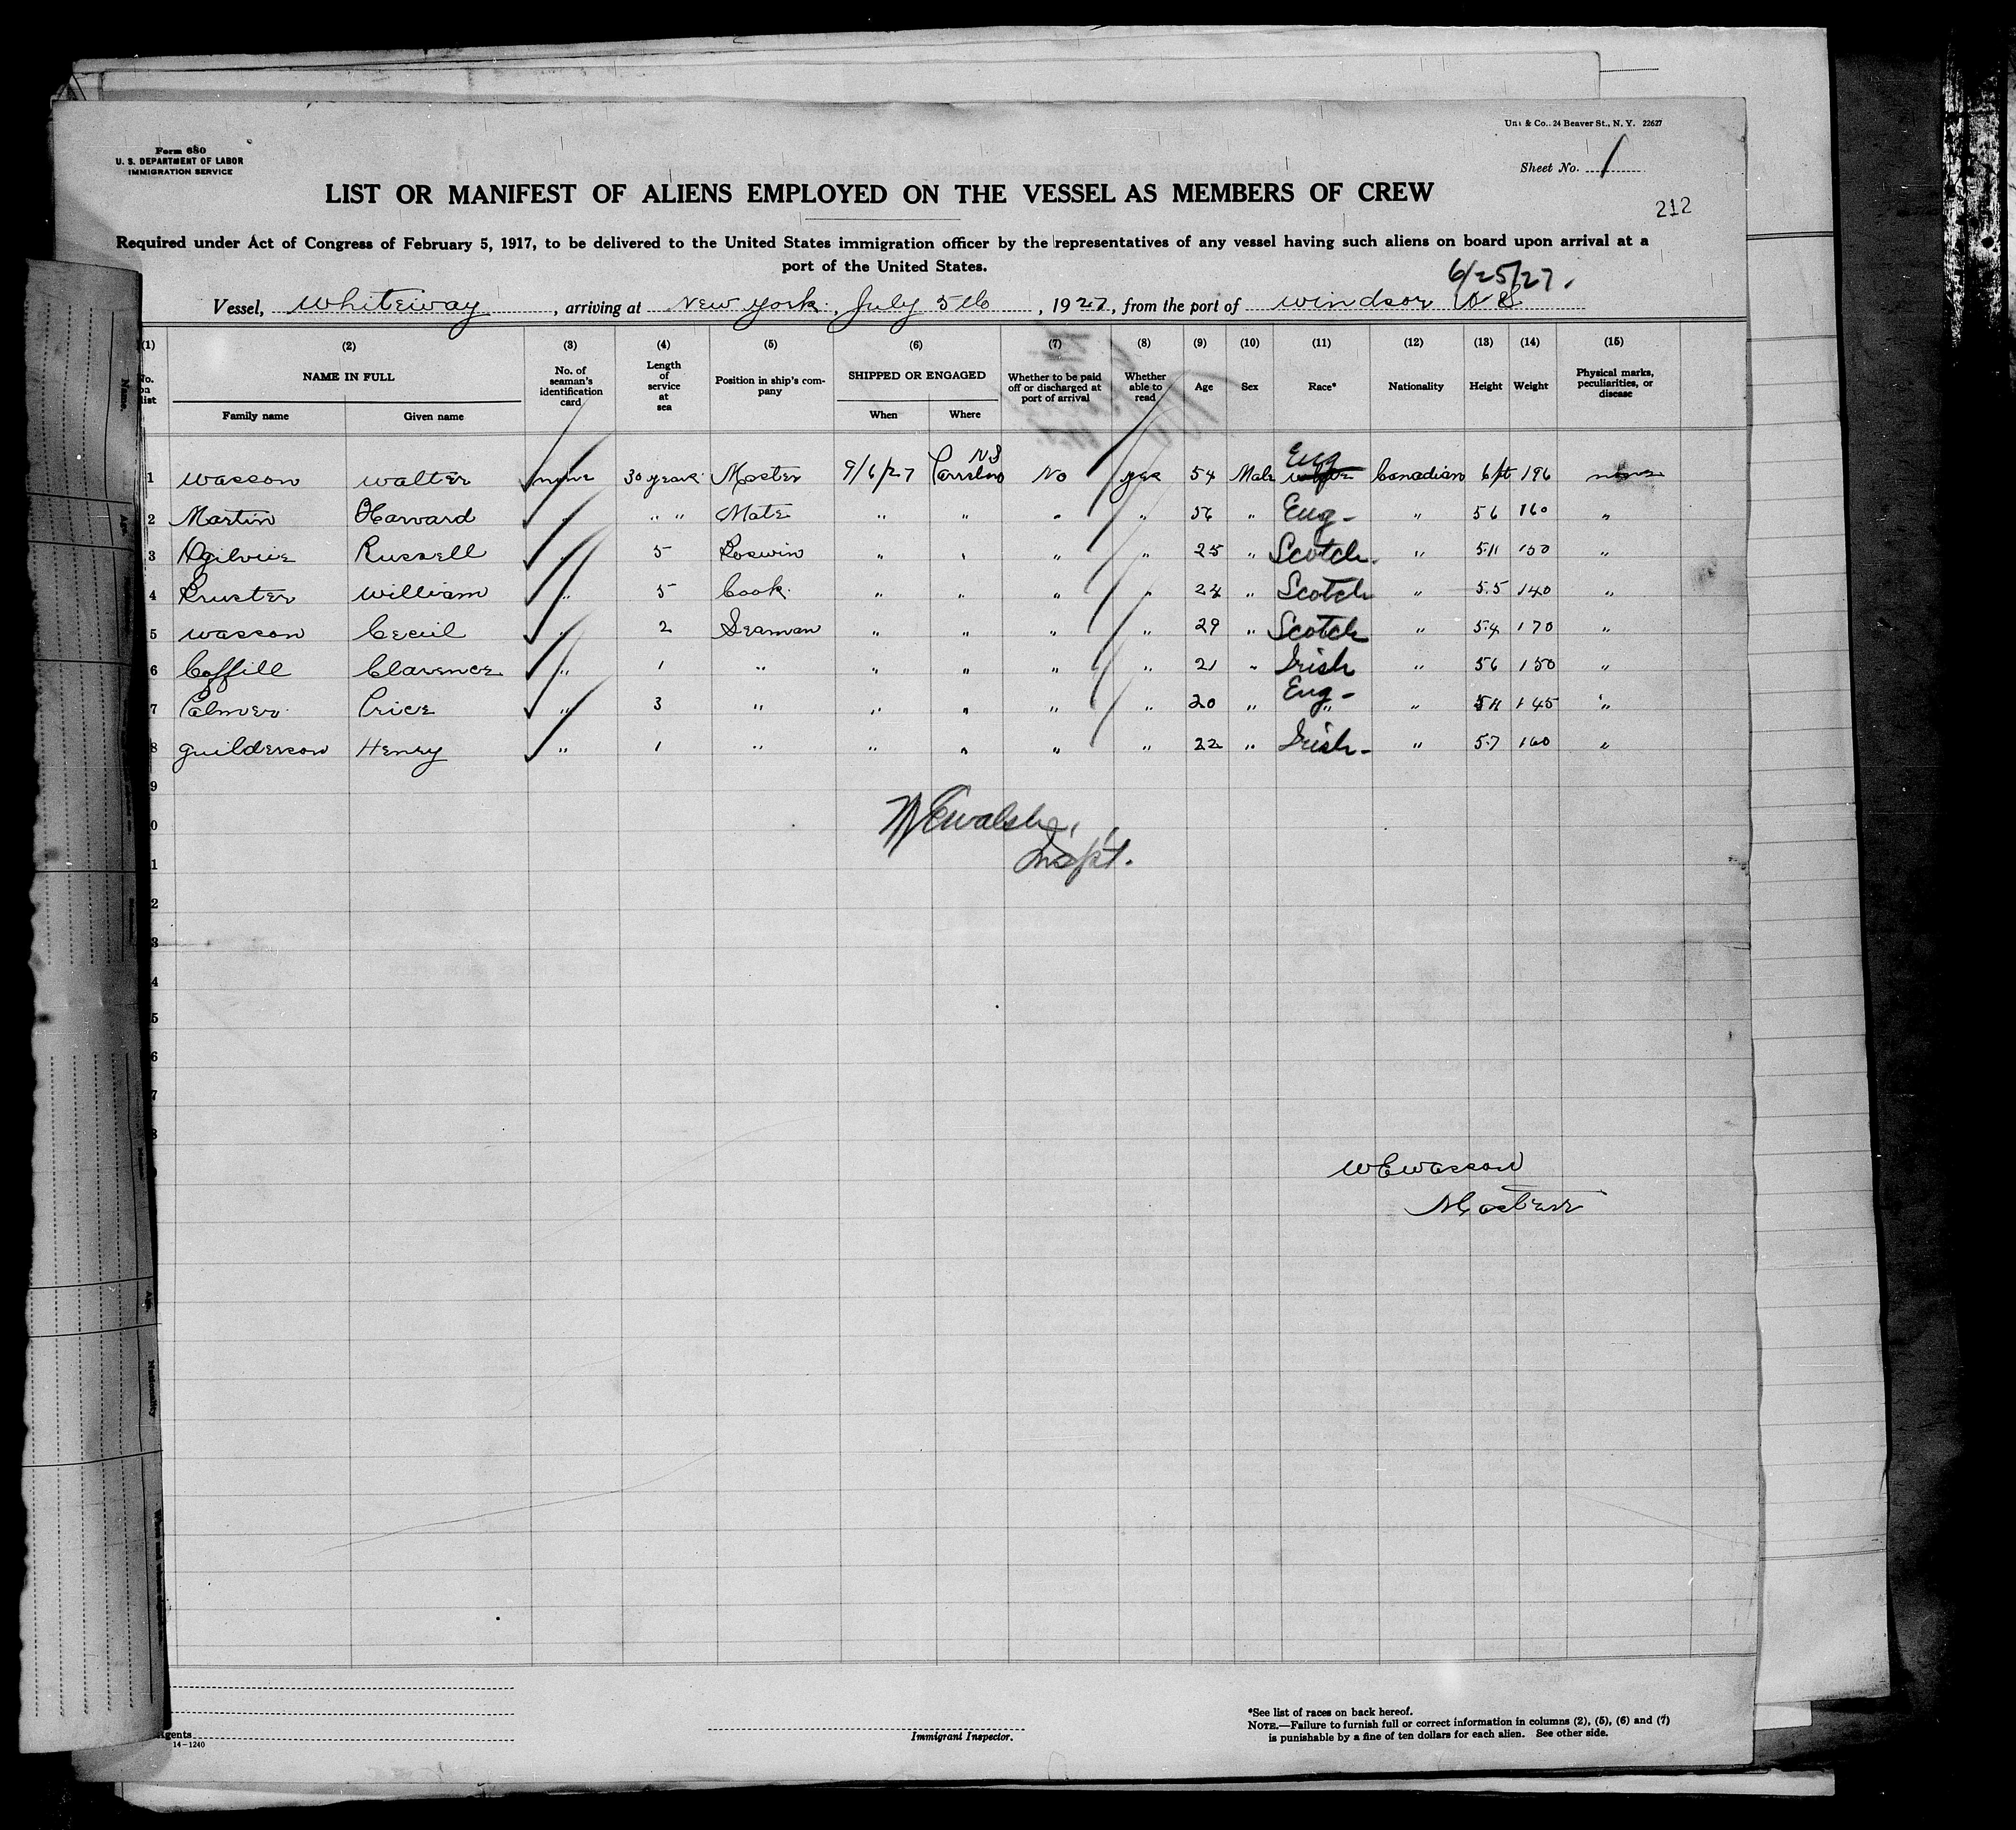 Form 680
U. S. DEPARTMENT OF LABOR
IMMIGRATION SERVICE
& Co., 24 Beaver St., N. Y. 22627
Sheet No. 1
LIST OR MANIFEST OF ALIENS EMPLOYED ON THE VESSEL AS MEMBERS OF CREW
212
Required under Act of Congress of February 5, 1917, to be delivered to the United States immigration officer by the representatives of any vessel having such aliens on board upon arrival at a
port of the United States.
6/25/27.
Vessel, Whiteway, arriving at New York, July 5th, 1927, from the port of Windsor N S
(1) (2) (3) (4) (5) (6) (7) (8) (9) (10) (11) (12) (13) (14) (15)
No. on list NAME IN FULL Family name Given name No. of seaman's identification card Length of service at sea Position in ship's company SHIPPED OR ENGAGED When Where Whether to be paid off or discharged at port of arrival Whether able to read Age Sex Race* Nationality Height Weight Physical marks, peculiarities, or disease
1 Wasson Walter none 30 years Master 9/6/27 Parrsboro NS No yes 54 Male Eng Canadian 6 ft 196 none
2 Martin Harvard " " " Mate " " " " 56 " Eng - " 5 6 160 "
3 Ogilvie Russell " 5 Boswin " " " " 25 " Scotch. " 5.11 150 "
4 William " 5 Cook " " " " 24 " Scotch " 5.5 140 "
5 Wasson Cecil " 2 Seaman " " " " 29 " Scotch " 5.4 170 "
6 Coffill Clarence " 1 " " " " " 21 " Irish " 5 6 150 "
7 Palmer Price " 3 " " " " " 20 " Eng - " 5 11 145 "
8 Guilderson Henry " 1 " " " " " 22 " Irish - " 5.7 160 "
9
0
1
2
3
4
5
6
7
8
Walsh,
Insp't.
W E Wasson
Master
Agents
14-1240
Immigrant Inspector.
*See list of races on back hereof.
NOTE.—Failure to furnish full or correct information in columns (2), (5), (6) and (7)
is punishable by a fine of ten dollars for each alien. See other side.